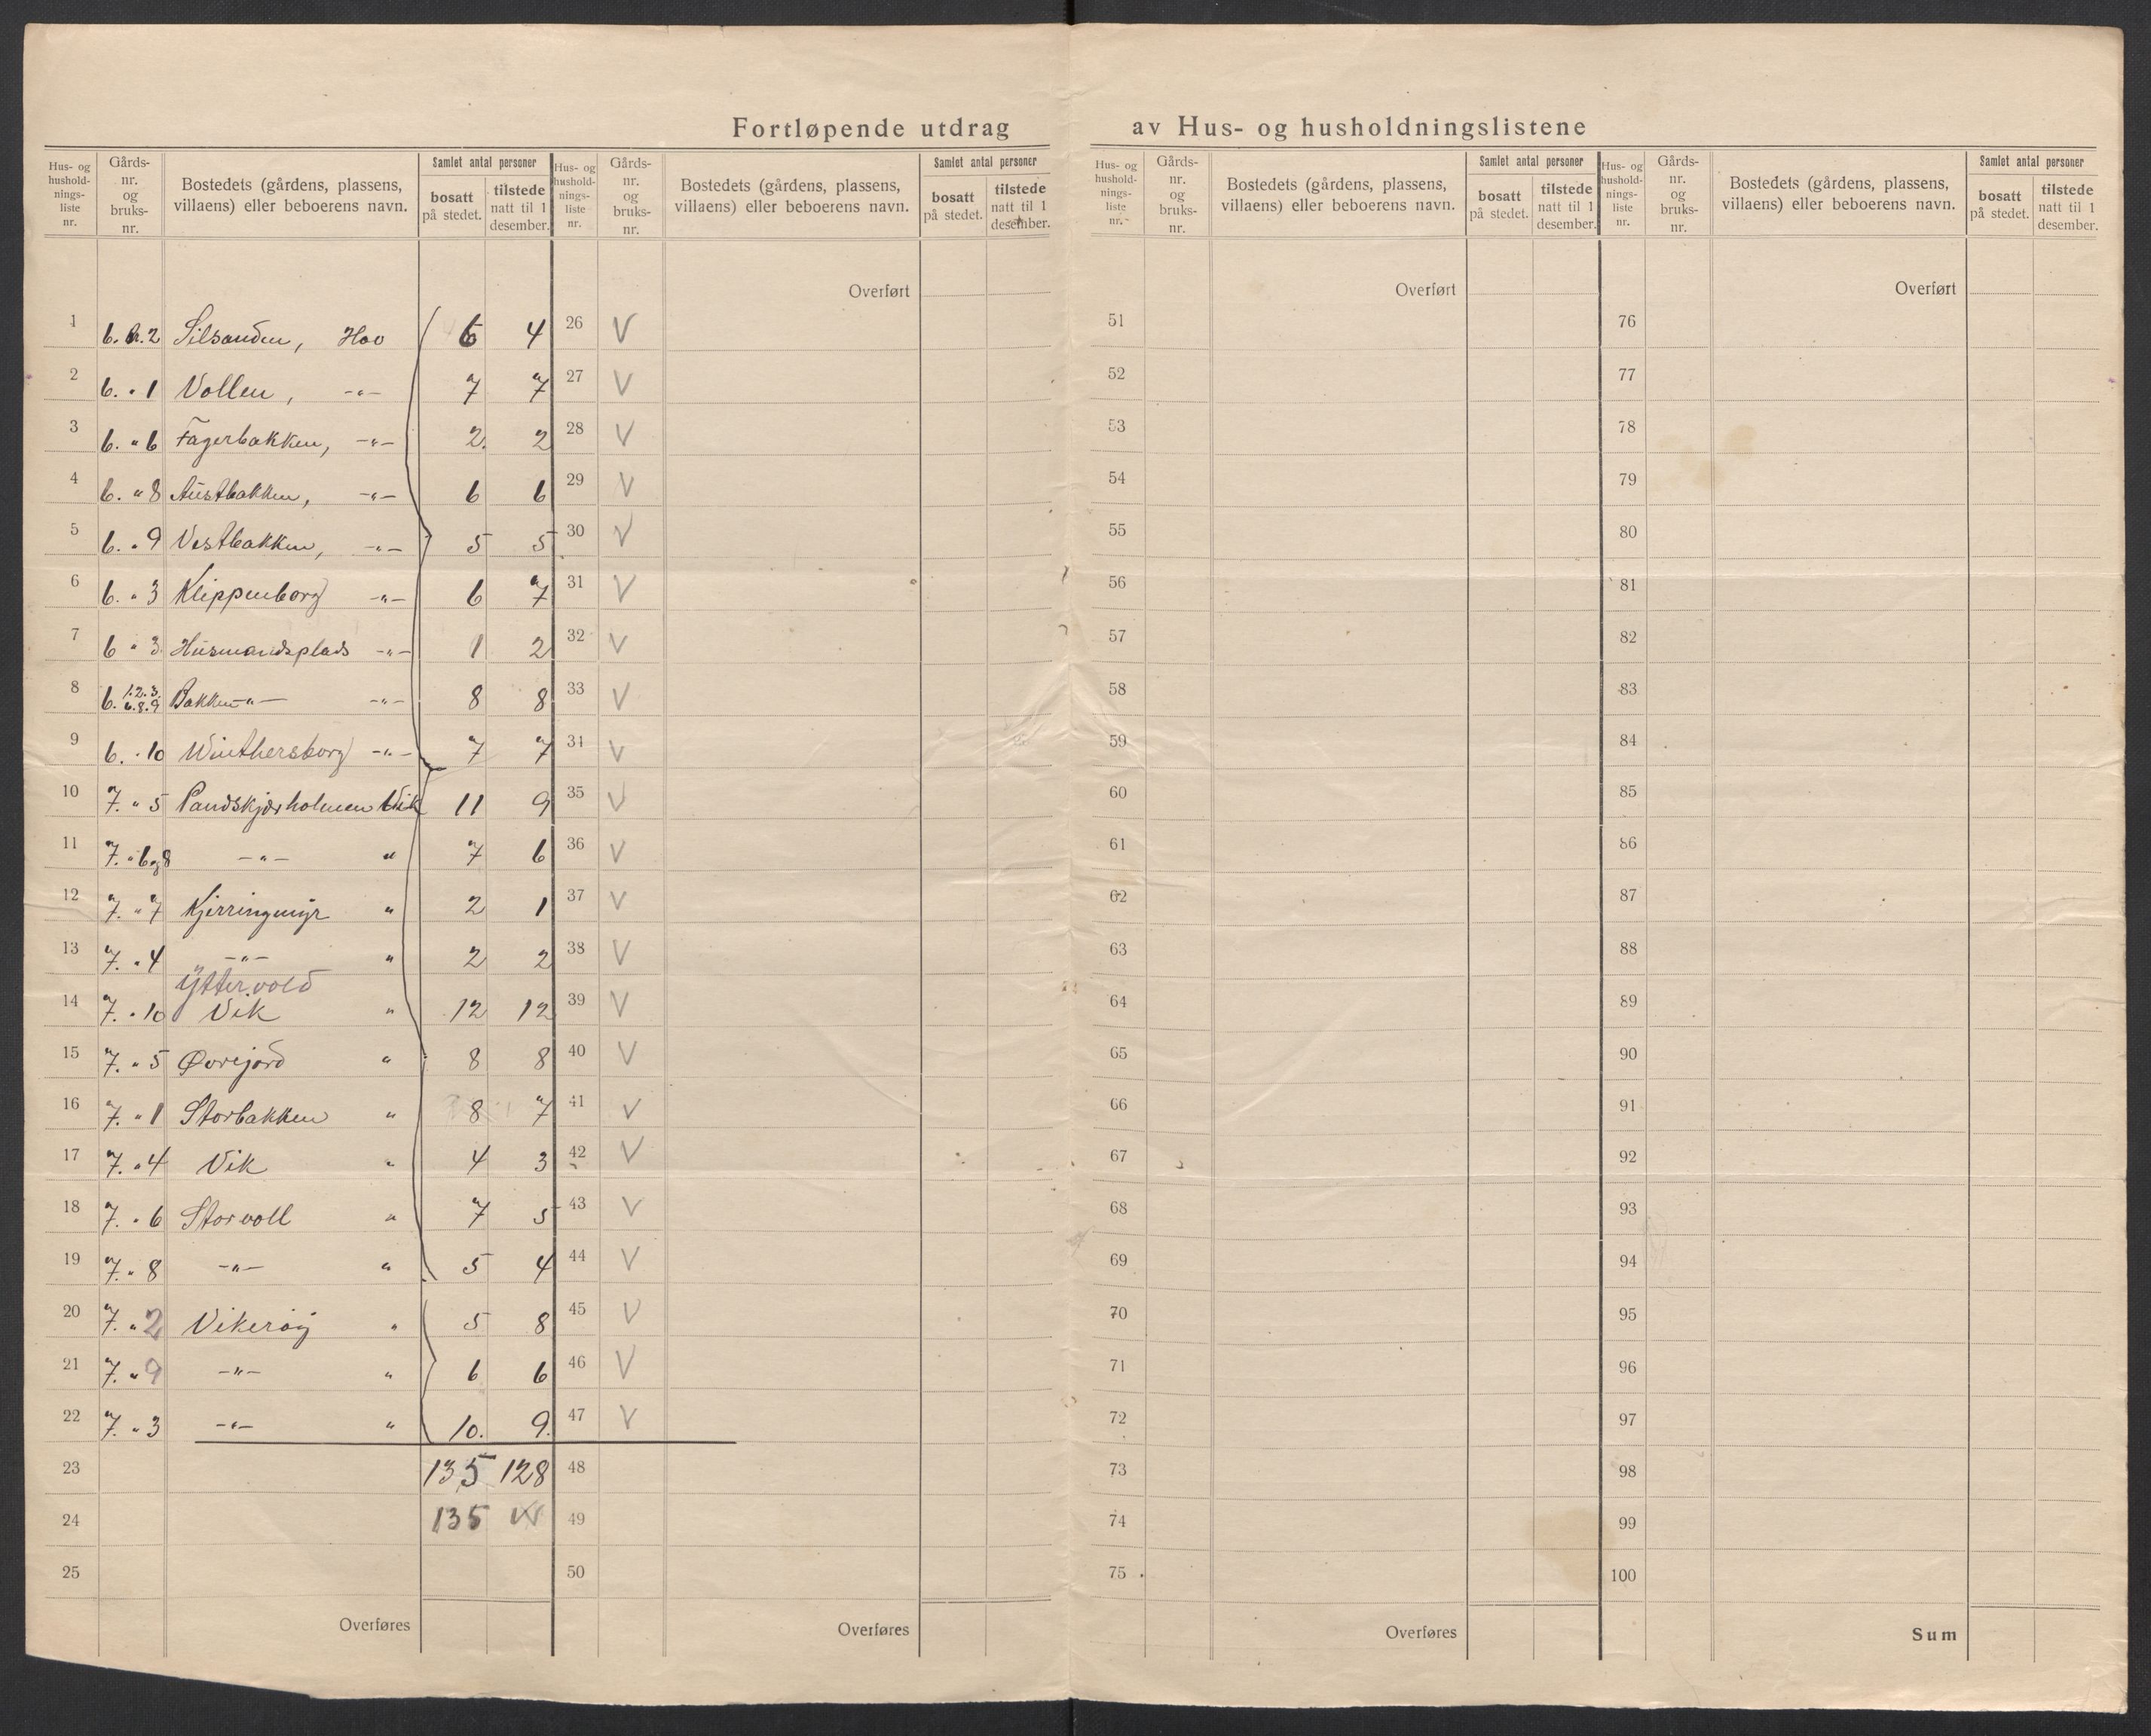 Fortløpende utdrag av Hus- og husholdningslistene
Hus- og husholdningsliste nr. | Gårds-nr. og bruks-nr. | Bostedets (gårdens, plassens, villaens) eller beboerens navn. | Samlet antal personer | bosatt på stedet. | tilstede natt til 1 desember.
1 6. Br. 2 Silsanden, Hov 6 4
2 6. " 1 Vollen, -"- 7 7
3 6. " 6 Fagerbakken, -"- 2. 2
4 6. " 8 Austbakken, -"- 6 6
5 6. " 9 Vestbakken, -"- 5 5
6 6. " 3 Klippenborg -"- 6 7
7 6 " 3 Husmandsplads -"- 1 2
8 6. 1.2.3. 6.8.9 Bakken -"- -"- 8 8
9 6. " 10 Winthersborg -"- 7 7
10 7. " 5 Pandskjærholmen Vik 11 9
11 7. " 6 og 8 -"- " 7 6
12 7. " 7 Kjerringmyr " 2 1
13 7. " 4 -"- " 2 2
Yttervold
14 7. " 10 Vik " 12 12
15 7. " 5 Øvrejord " 8 8
16 7. " 1 Storbakken " 8 7
17 7. " 4 Vik " 4 3
18 7. " 6 Storvoll " 7 5
19 7. " 8 -"- " 5 4
20 7. " 2 Vikerøy " 5 8
21 7. " 9 -"- " 6 6
22 7. " 3 -"- " 10. 9.
23 135 128
24 135
25
Overføres
Hus- og husholdningsliste nr. | Gårds-nr. og bruks-nr. | Bostedets (gårdens, plassens, villaens) eller beboerens navn. | Samlet antal personer | bosatt på stedet. | tilstede natt til 1 desember.
Overført
26 V
27 V
28 V
29 V
30 V
31 V
32 V
33 V
34 V
35 V
36 V
37 V
38 V
39 V
40 V
41 V
42 V
43 V
44 V
45 V
46 V
47 V
48
49
50
Overføres
Hus- og husholdningsliste nr. | Gårds-nr. og bruks-nr. | Bostedets (gårdens, plassens, villaens) eller beboerens navn. | Samlet antal personer | bosatt på stedet. | tilstede natt til 1 desember.
Overført
51
52
53
54
55
56
57
58
59
60
61
62
63
64
65
66
67
68
69
70
71
72
73
74
75
Overføres
Hus- og husholdningsliste nr. | Gårds-nr. og bruks-nr. | Bostedets (gårdens, plassens, villaens) eller beboerens navn. | Samlet antal personer | bosatt på stedet. | tilstede natt til 1 desember.
Overført
76
77
78
79
80
81
82
83
84
85
86
87
88
89
90
91
92
93
94
95
96
97
98
99
100
Sum